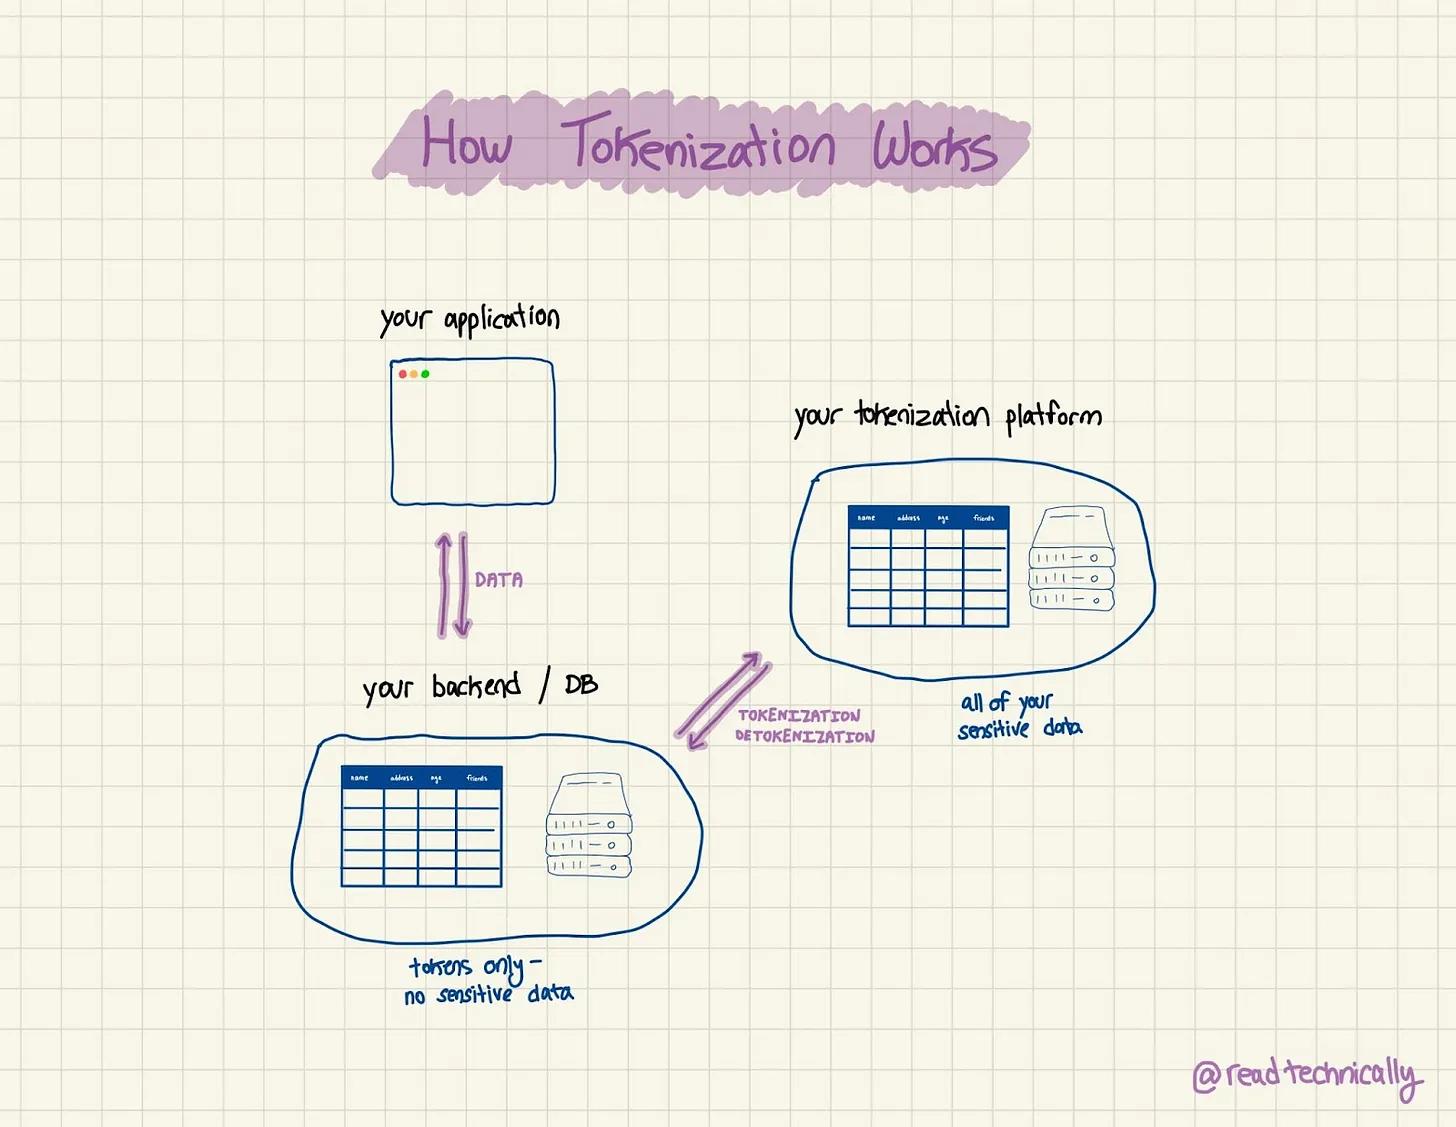 How Tokenization Works
your application
DATA
your tokenization platform
name address age friends
all of your
sensitive data
TOKENIZATION
DETOKENIZATION
your backend / DB
name address age friends
tokens only-
no sensitive data
@readtechnically